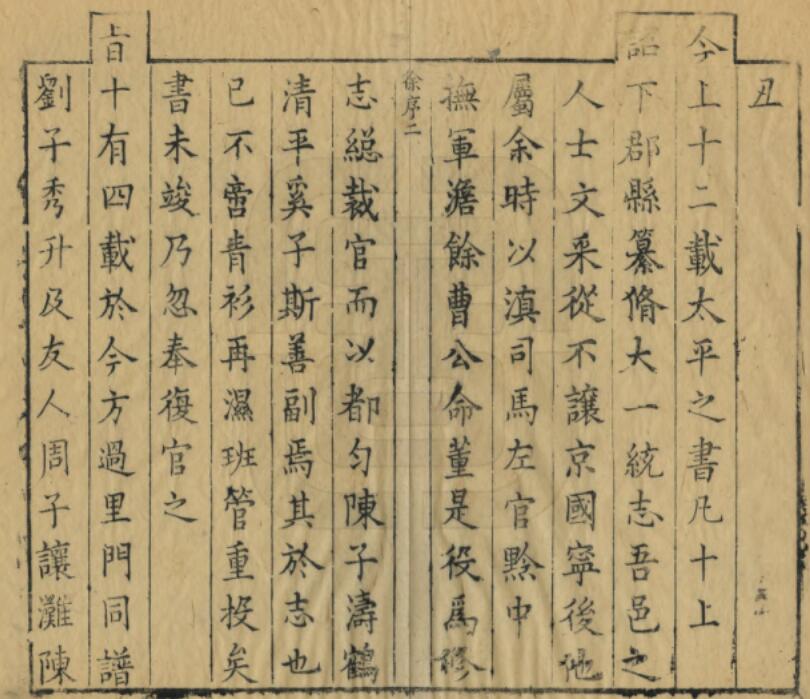 丑
今上十二載太平之書凡十上
詔下郡縣纂脩大一統志吾邑之
人士文采從不讓京國寧後他
屬余時以滇司馬左官黔中
撫軍澹餘曹公命董是役爲修
徐序二
志總裁官而以都勻陳子濤鶴
清平奚子斯善副焉其於志也
已不啻青衫再濕班管重投矣
書未竣乃忽奉復官之
旨十有四載於今方過里門同譜
劉子秀升及友人周子讓灘陳